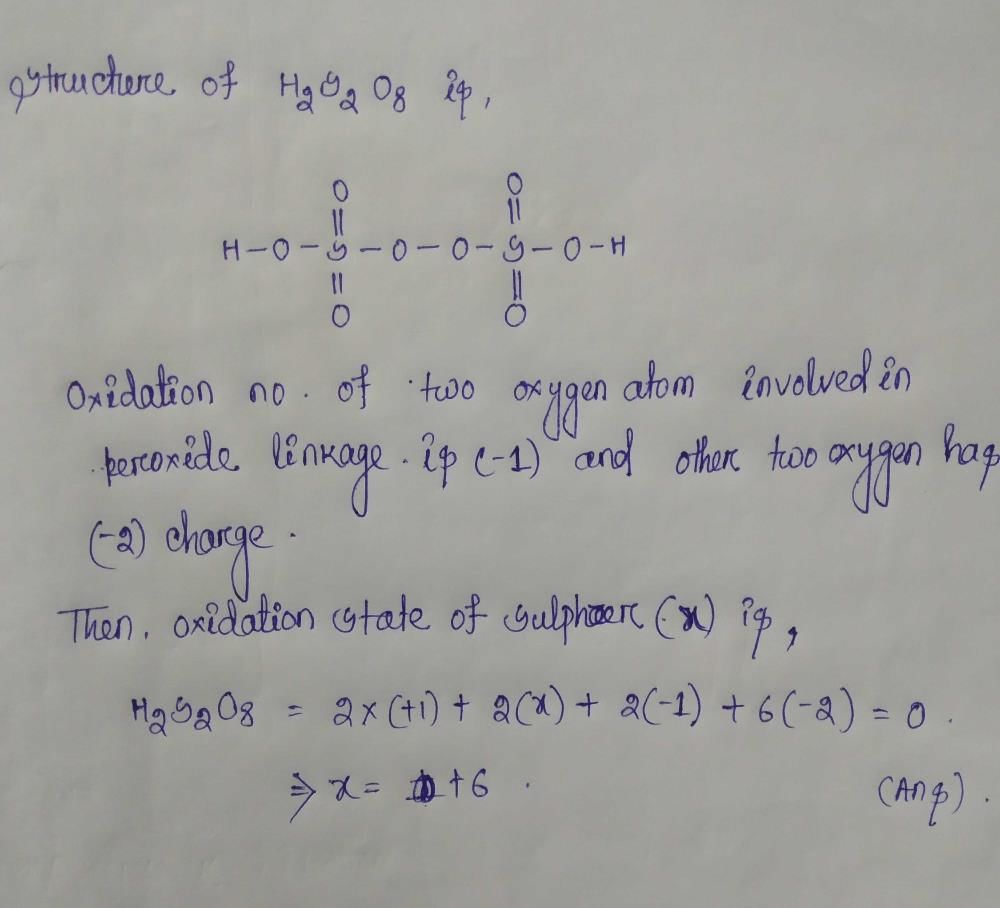 Structure of H2S2O8 is,
O O
|| ||
H-O-S-O-O-S-O-H
|| ||
O O
Oxidation no. of two oxygen atom involved in
peroxide linkage. is (-1) and other two oxygen has
(-2) charge.
Then, oxidation state of sulphur (x) is,
H2S2O8 = 2x(+1) + 2(x) + 2(-1) + 6(-2) = 0.
⇒ x = +6. (Ans).